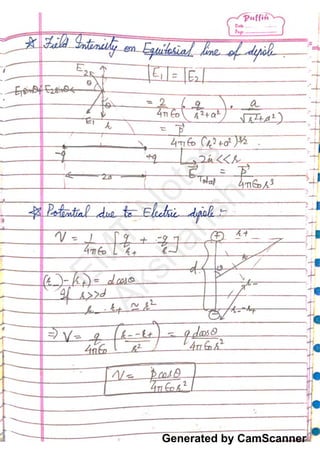 Puffin
Date
Page
* Field Intensity on Equitorial line of dipole.
E₂
|E₁| = |E₂|
θ
E₁sinθ E₂sinθ
θ
E₁ r
= 2/4πε₀ (q/r²+a²) · a/√(r²+a²)
= p⃗/4πε₀ (r²+a²)^3/2
-q +q
2a
2a << r
E⃗Total = p⃗/4πε₀r³
* Potential due to Electric dipole :-
V = 1/4πε₀ [q/r₊ + -q/r₋]
(r₋)-(r₊) = d cosθ
If r>>d
r₋ · r₊ ≃ r²
+ r₊
d
θ r
r₋
- r₋-r₊
⇒ V = q/4πε₀ (r₋-r₊/r²) = q d cosθ/4πε₀r²
V = p cosθ/4πε₀r²
Generated by CamScanner